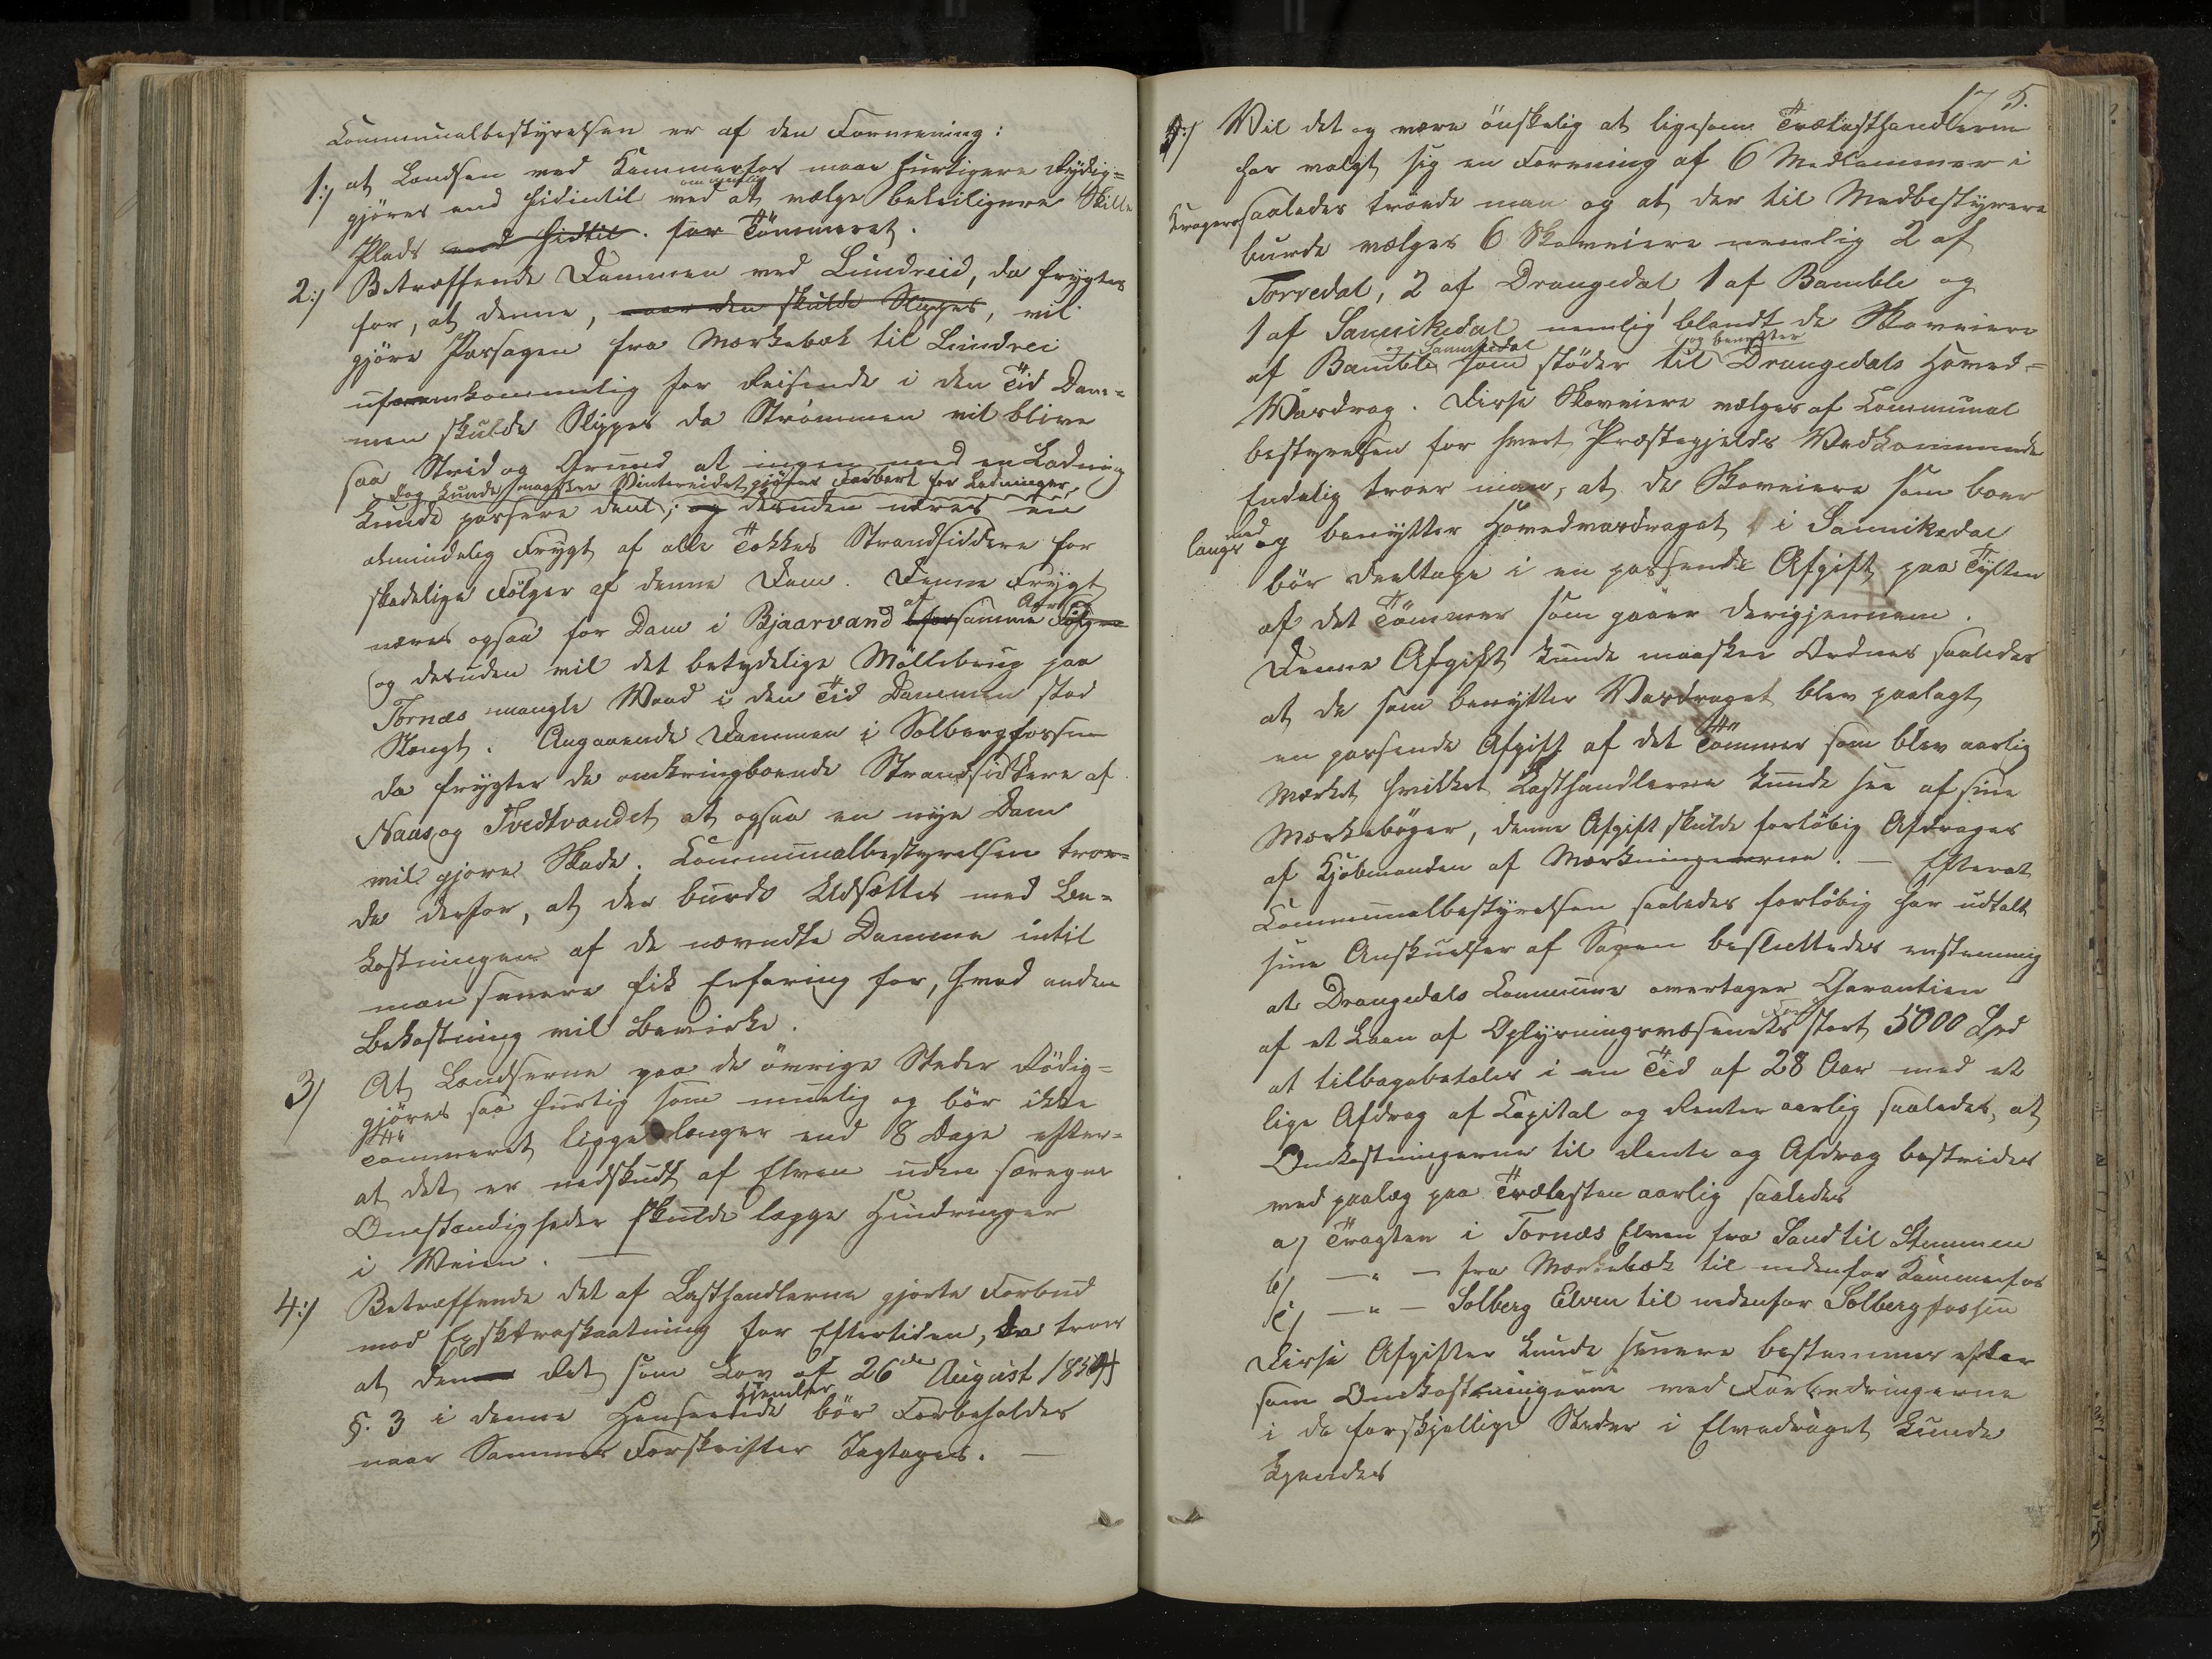 Communalbestyrelsen er af den Formening:
1:) at Landsen ved Kammerfos maae hurtigere Rydig=
gjöres end hidintil om muelig ved at vælge beleiligere Skille
Plads end hidtil. for Tömmeret.
2:) Betræffende Dammen ved Lundreid, da frygtes
for, at denne, naar den skulde Slippes, vil
gjöre Passagen fra Mærkebæk til Lundrei
ufremkommelig for Reisende i den Tid Dam=
men skulde Slippes da Strömmen vil blive
saa Strid og Grund at ingen med en Ladning
Dog kunde maaskee Vintereidet gjöres Farbart for Ladninger,
kunde passere deel; og desuden næres en
almindelig Frygt af alle Tokkes Strandsiddere for
skadelige Fölger af denne Dam. Denne Frygt
næres ogsaa for Dam i Bjaarvand af for samme Aarsag Fölger
og desuden vil det betydelige Möllebrug paa
Tornæs mangle Vand i den Tid Dammen stod
Stængt. Angaaende Dammen i Solbergfossen
da frygter de omkringboende Strandsiddere af
Naas og Tvedtvandet at ogsaa en nye Dam
vil gjöre Skade. Communalbestyrelsen troe=
de derfor, at der burde Udsættes med Be=
kostningen af de nævndte Damme intil
man senere fik Erfaring for, hvad anden
Bekostning vil bevirke.
3) At Landserne paa de övrige Steder Rödig=
gjöres saa hurtig som muelig og bör ikke
Tömmeret ligge længer end 8 Dage efter=
at det er nedskudt af Elven uden særegne
Omstændigheder skulde lægge Hindringer
i Veien. —
4:) Betræffende det af Lasthandlerne gjorte Forbud
mod Exstraskaatning for Eftertiden, da troes
at den Ret som Lov af 26de August 1854
§. 3 i denne Henseende hjemler bör Forbeholdes
naar Sammes Forskrifter Iagtages. —
175.
5:) Vil det og være önskelig at ligesom Trælasthandlerne
har valgt sig en Forening af 6 Medlemmer i
Krageröe saaledes troede man og at der til Medbestyrere
burde vælges 6 Skoveiere nemlig 2 af
Torredal, 2 af Drangedal, 1 af Bamble og
1 af Sannikedal nemlig blandt de Skoveiere
af Bamble og Sannikedal som stöder til og benytter Drangedals Hoved=
Vasdrag. Disse Skoveiere vælges af Communal
bestyrelsen for hvert Præstegjelds Vedkommende
Endelig troer man, at de Skoveiere som boer
langs med og benytter Hovedvasdraget i Sannikedal
bör deeltage i en passende Afgift paa Tylten
af det Tömmer som gaaer derigjennem.
Denne Afgift kunde maaskee Ordnes saaledes
at de som benytter Vasdraget blev paalagt
en passende Afgift af det Tömmer som blev aarlig
Mærket hvilket Lasthandlerne kunde see af sine
Mærkebøger, denne Afgift skulde forlöbig Afdrages
af Kjöbmanden af Mærkningerne. — Efterat
Communalbestyrelsen saaledes forlöbig har udtalt
sine Anskuelser af Sagen besluttedes enstemmig
at Drangedals Commune overtager Garantien
af et Laan af Oplysningsvæsenets Fond stort 5000 Spd
at tilbagebetales i en Tid af 28 Aar med et
lige Afdrag af Capital og Renter aarlig saaledes, at
Omkostningerne til Rente og Afdrag bestrides
ved paalæg paa Trælasten aarlig saaledes
a) Tragten i Tornæs Elven fra Sand til Stemmen
b) —"— fra Mærkebæk til nedenfor Kammerfos
c) —"— Solberg Elven til nedenfor Solbergfossen
Disse Afgifter kunde senere bestemmes efter
som Omkostningerne ved Forbedringerne
i de forskjellige Steder i Elvedraget kunde
kjendes